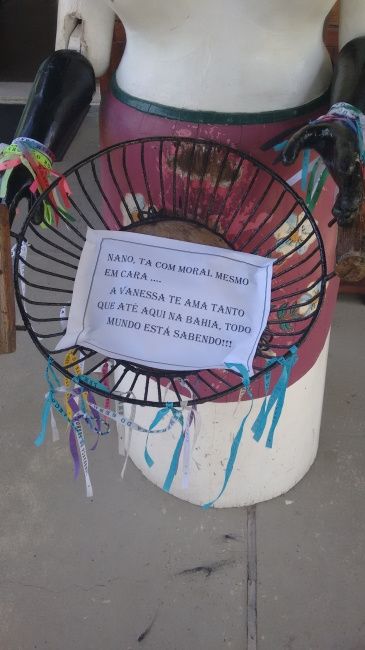 NANO, TA COM MORAL MESMO
EM CARA ....
A VANESSA TE AMA TANTO
QUE ATÉ AQUI NA BAHIA, TODO
MUNDO ESTÁ SABENDO!!!